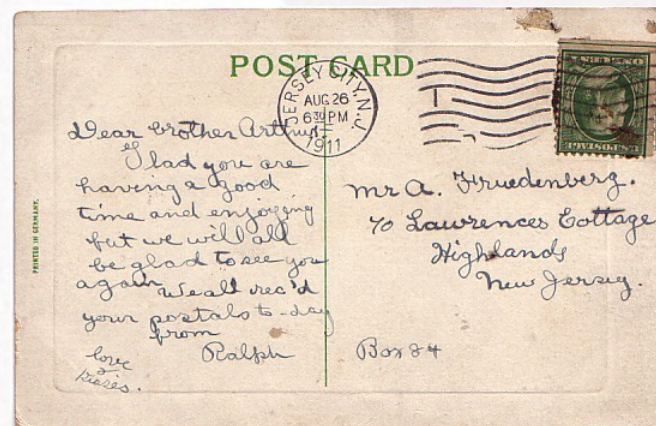 POST CARD
JERSEY CITY, N.J.
AUG 26
6 30 PM
1911
Dear brother Arthur:
Glad you are
having a good
time and enjoying
but we will all
be glad to see you
again We all rec'd
your postals to-day
from
Ralph
love
&
kisses.
Mr A. Fruedenberg.
% Lawrences Cottage
Highlands
New Jersey.
Box 84
PRINTED IN GERMANY.